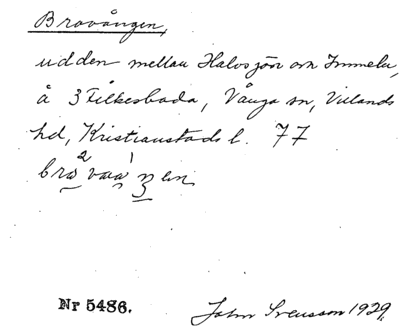 Brovången,
udden mellan Halvsjön och Immeln,
å 3 Filkesboda, Vånga sn, Villands
hd, Kristianstads l. 77
Nr 5486.
John Svensson 1929.